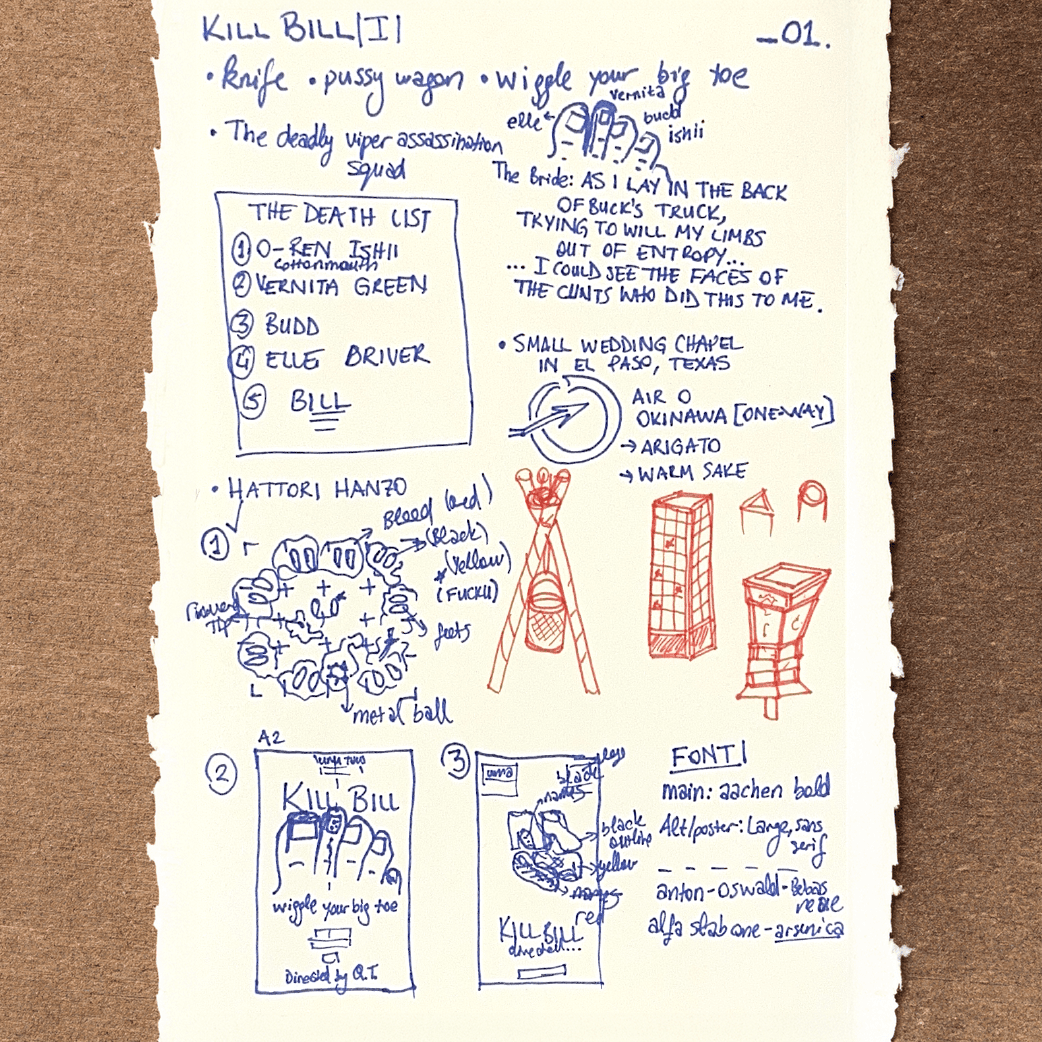 KILL BILL|I|
_01.
• knife • pussy wagon • wiggle your big toe
elle
vernita
budd
ishii
• The deadly viper assassination
squad
THE DEATH LIST
① O-REN ISHII
cottonmouth
② VERNITA GREEN
③ BUDD
④ ELLE BRIVER
⑤ BILL
The Bride: AS I LAY IN THE BACK
OF BUCK'S TRUCK,
TRYING TO WILL MY LIMBS
OUT OF ENTROPY...
... I COULD SEE THE FACES OF
THE CUNTS WHO DID THIS TO ME.
• SMALL WEDDING CHAPEL
IN EL PASO, TEXAS
AIR O
OKINAWA [ONE-WAY]
→ ARIGATO
→ WARM SAKE
• HATTORI HANZO
①
Bleed (red)
(Black)
(Yellow)
(FUCKU)
feets
metal ball
②
A2
KILL BILL
wiggle your big toe
Directed by Q.T.
③
uma
black
names
black
outline
yellow
names
red
KILL BILL
FONT|
main: aachen bold
Alt/poster: Large, sans
serif
anton-oswald-Bebas
neue
alfa slab one-arsenica